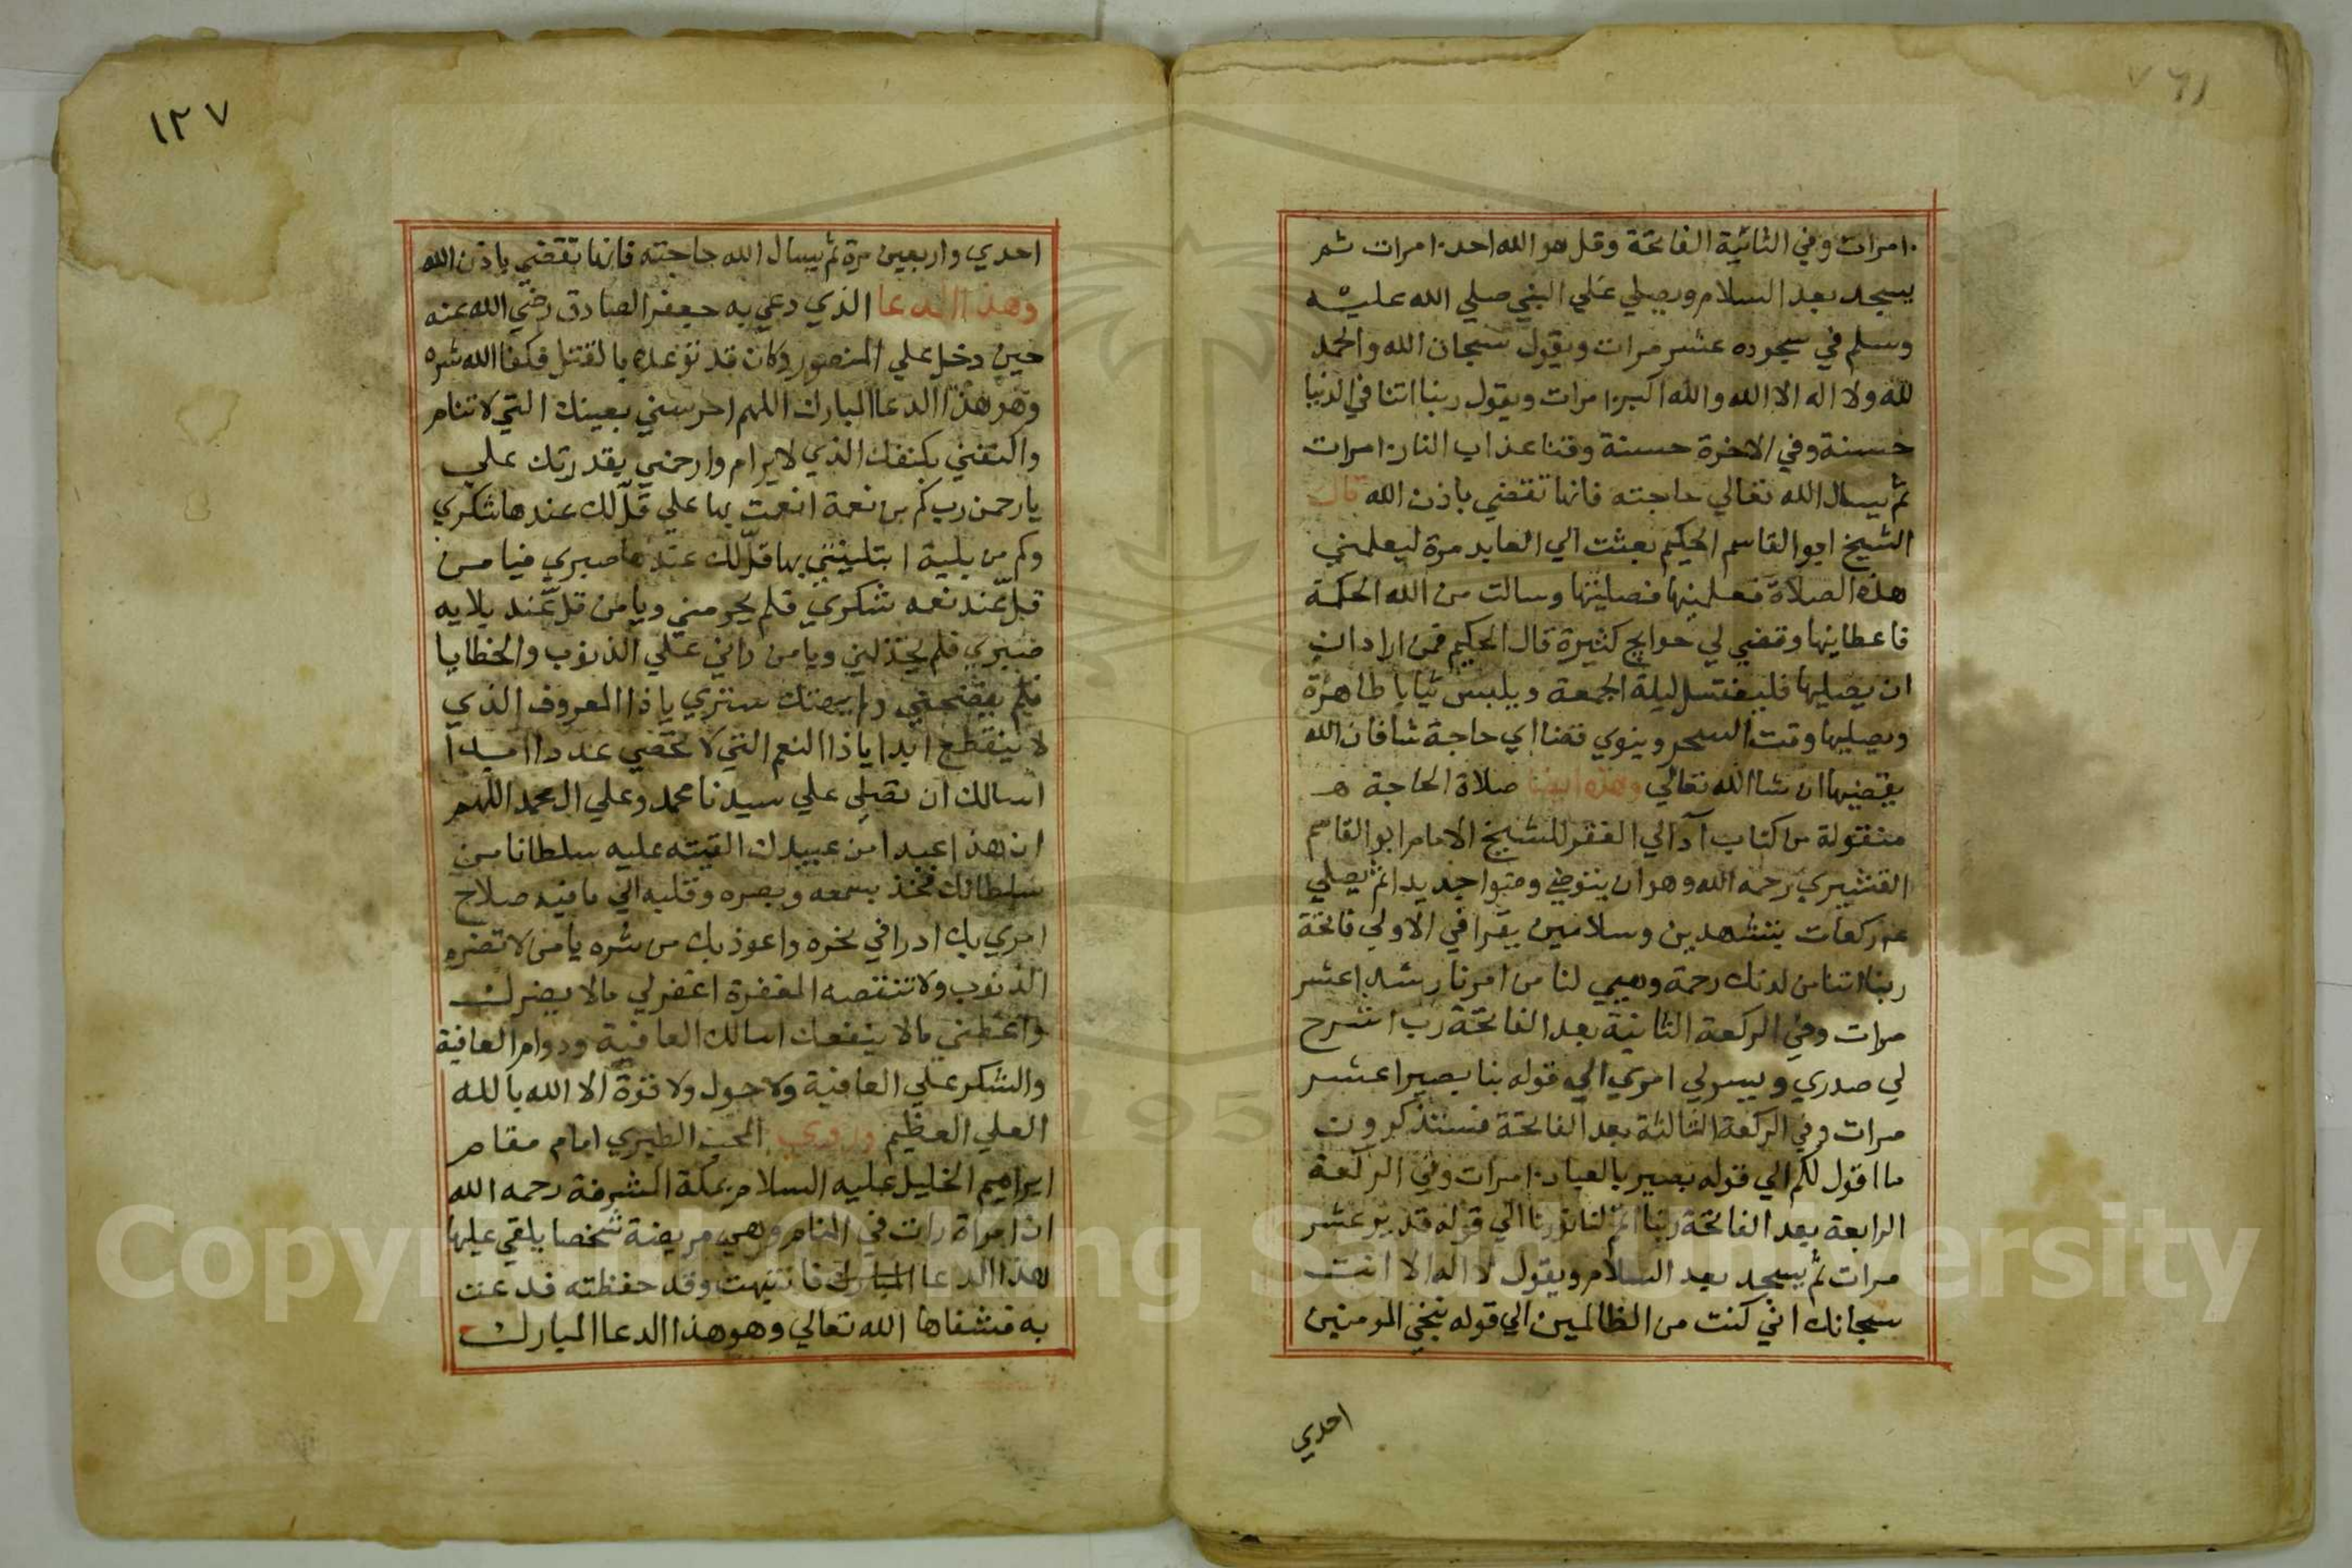 ١٠ مرات وفي الثانية الفاتحة وقل هو الله احد ١٠ مرات ثم
يسجد بعد السلام ويصلي علي النبي صلي الله عليه
وسلم في سجوده عشر مرات ويقول سبحان الله والحمد
لله ولا اله الا الله والله اكبر ١٠ مرات ويقول ربنا اتنا في الدنيا
حسنة وفي الاخرة حسنة وقنا عذاب النار ١٠ مرات
ثم يسال الله تعالي حاجته فانها تقضي باذن الله قال
الشيخ ابو القاسم الحكيم بعثت الي العابد مرة ليعلمني
هذه الصلاة فعلمنيها فصليتها وسالت من الله الحكمة
فاعطانيها وقضي لي حوايج كثيرة قال الحكيم فمن اراد ان
ان يصليها فليغتسل ليلة الجمعة ويلبس ثيابا طاهرة
ويصليها وقت السحر وينوي قضا اي حاجة شا فان الله
يقضيها ان شا الله تعالي وهذه ايضا صلاة الحاجة
منقولة من كتاب آدالي الفقر للشيخ الامام ابو القاسم
القشيري رحمه الله وهو ان يتوضي وضوا جديدا ثم يصلي
ركعات بتشهدين وسلامين يقرا في الاولي فاتحة
ربنا اتنا من لدنك رحمة وهيي لنا من امرنا رشدا عشر
مرات وفي الركعة الثانية بعد الفاتحة رب اشرح
لي صدري ويسر لي امري الي قوله بنا بصيرا عشر
مرات وفي الركعة الثالثة بعد الفاتحة فستذكرون
ما اقول لكم الي قوله بصير بالعباد ١٠ مرات وفي الركعة
الرابعة بعد الفاتحة ربنا اتمم لنا نورنا الي قوله قدير عشر
مرات ثم يسجد بعد السلام ويقول لا اله الا انت
سبحانك اني كنت من الظالمين الي قوله ننجي المومنين
احدي
١٢٧
احدي واربعين مرة ثم يسال الله حاجته فانها تقضي باذن الله
وهذا الدعا الذي دعي به جعفر الصادق رضي الله عنه
حين دخل علي المنصور وكان قد توعده بالقتل فكفا الله شره
وهو هذا الدعا المبارك اللهم احرسني بعينك التي لا تنام
واكنفني بكنفك الذي لا يرام وارحمني بقدرتك علي
يا رحمن رب كم من نعمة انعمت بها علي قلّ لك عندها شكري
وكم من بلية ابتليتني بها قلّ لك عندها صبري فيا من
قلّ عند نعمه شكري فلم يحرمني ويا من قلّ عند بلايه
صبري فلم يخذلني ويا من راني علي الذنوب والخطايا
فلم يفضحني ستري يا ذا المعروف الذي
لا ينقطع ابدا يا ذا النعم التي لا تحصي عددا امدا
اسالك ان تصلي علي سيدنا محمد وعلي ال محمد اللهم
ان هذا عبدا من عبيدك القيته عليه سلطانا من
سلطانك فخذ بسمعه وبصره وقلبه الي ما فيه صلاح
امري بك ادرا في نحره واعوذ بك من شره يا من لا تضره
الذنوب ولا تنقصه المغفرة اغفر لي مالا يضرك
واعطني مالا ينفعك اسالك العافية ودوام العافية
والشكر علي العافية ولا حول ولا قوة الا الله بالله
العلي العظيم وروي المحب الطبري امام مقام
ابراهيم الخليل عليه السلام بمكة المشرفة رحمه الله
ان امراة رات في المنام وهي مريضة شخصا يلقي عليها
هذا الدعا المبارك فانتبهت وقد حفظته فدعت
به فشفاها الله تعالي وهو هذا الدعا المبارك
Copyright © King Saud University